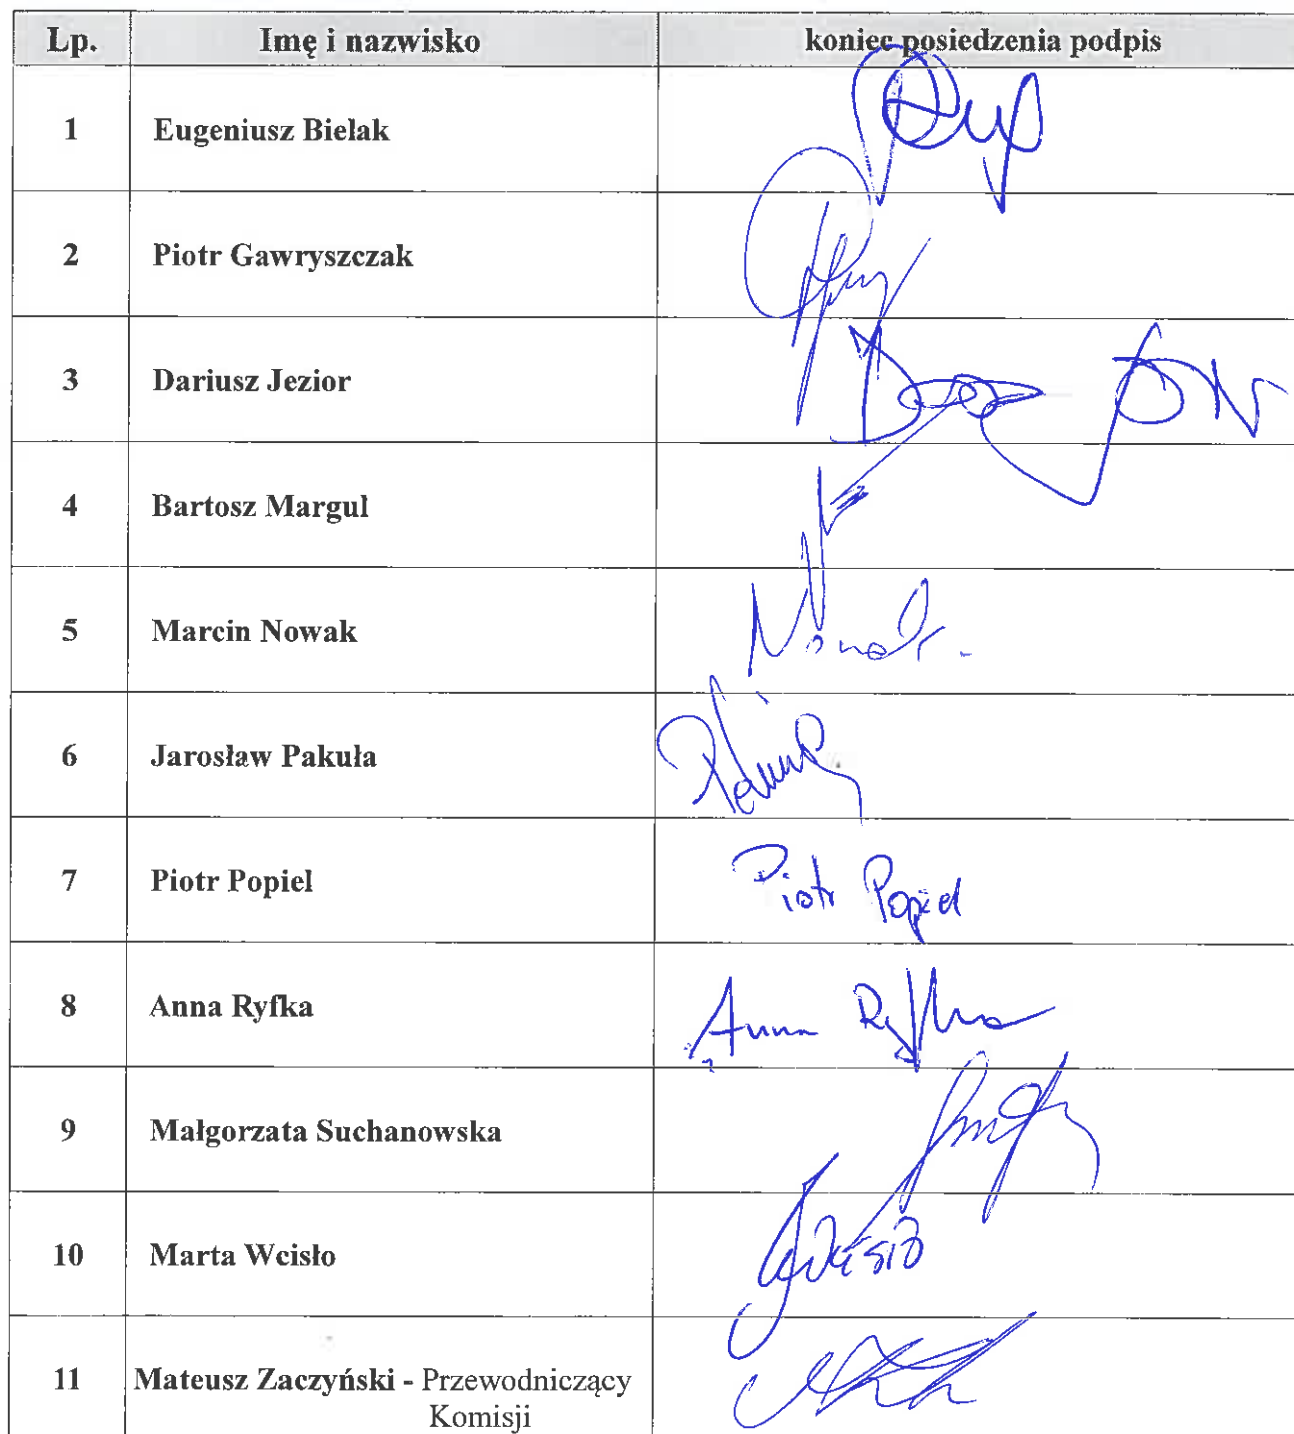 Lp. Imię i nazwisko koniec posiedzenia podpis
1 Eugeniusz Bielak
2 Piotr Gawryszczak
3 Dariusz Jezior
4 Bartosz Margul
5 Marcin Nowak Nowak
6 Jarosław Pakuła
7 Piotr Popiel Piotr Popiel
8 Anna Ryfka Anna Ryfka
9 Małgorzata Suchanowska
10 Marta Wcisło Wcisło
11 Mateusz Zaczyński - Przewodniczący
Komisji